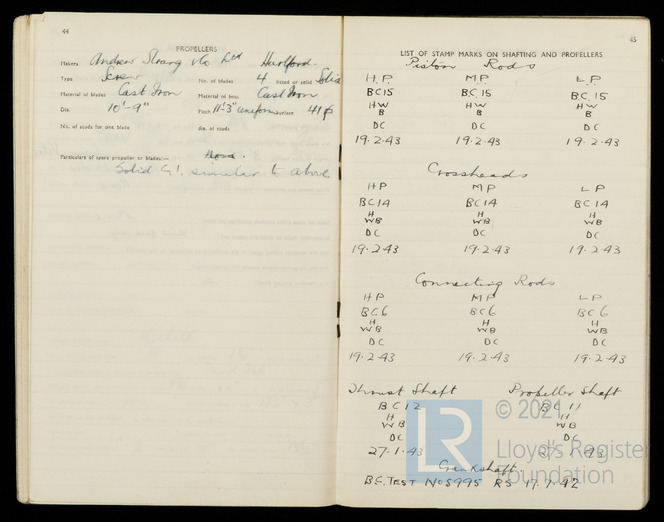 44
PROPELLERS
Makers Andrew Strang & Co Ltd Hurlford.
Type Screw No. of blades 4 fitted or solid Solid
Material of blades Cast Iron Material of boss Cast Iron
Dia. 10'-9" Pitch 11'-3" uniform surface 41
No. of studs for one blade dia. of studs
Particulars of spare propeller or blades:—
Solid C.I. similar to above
45
LIST OF STAMP MARKS ON SHAFTING AND PROPELLERS
Piston Rods
H.P. M.P. L.P.
BC15 BC.15 BC.15
HW HW HW
B B B
DC DC DC
19.2.43 19.2.43 19.2.43
Crossheads
HP MP LP
BC14 BC14 BC14
H H H
WB WB WB
DC DC DC
19.2.43 19.2.43 19.2.43
Connecting Rods
HP MP LP
BC6 BC6 BC6
H H H
WB WB WB
DC DC DC
19.2.43 19.2.43 19.2.43
Thrust Shaft Propeller Shaft
BC12 BC11
H H
WB WB
DC DC
27-1-43 27-1-43
Crankshaft.
B.E. TEST No 5995 RS 17.7.42
LR
© 2021
Lloyd's Register
Foundation